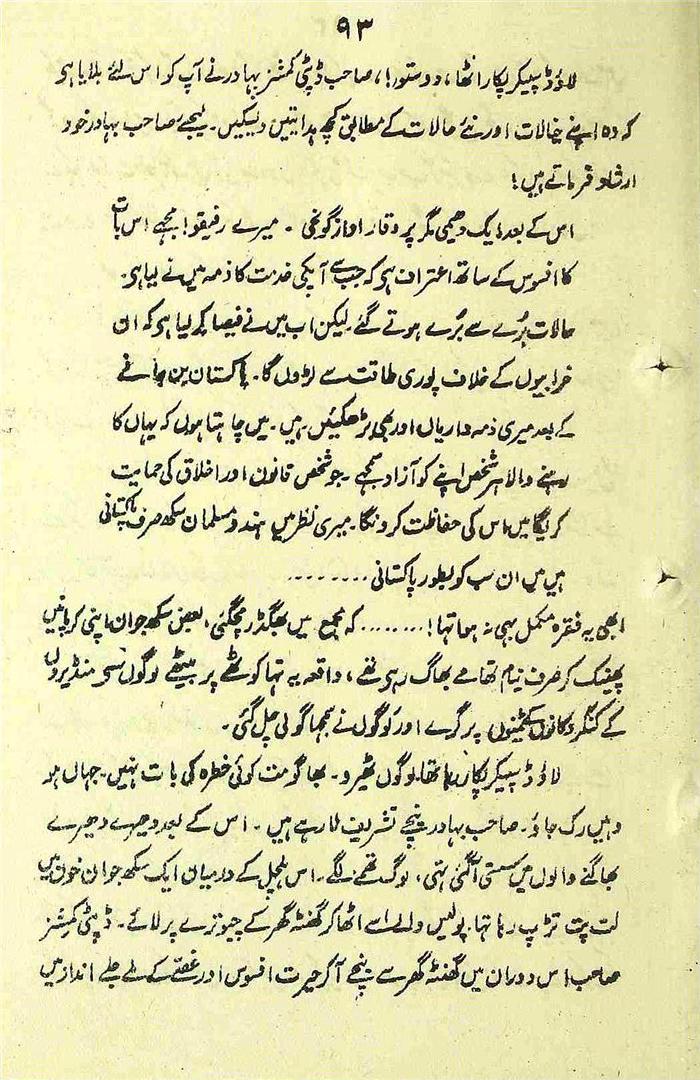 ۹۳
لاؤڈ سپیکر پکار اٹھا، دوستو!، صاحب ڈپٹی کمشنر بہادر نے آپ کو اس لئے بلایا ہی
کہ وہ اپنے خیالات اور نئے حالات کے مطابق کچھ ہدایتیں دیسکیں۔ لیجئے صاحب بہادر خود
ارشاد فرماتے ہیں!
اس کے بعد ایک دھیمی مگر پر وقار اواز گونجی ۔ میرے رفیقو! مجہے اس بات
کا افسوس کے ساتھ اعتراف ہی کہ جب سے آپکی خدمت کا ذمہ میں نے لیا ہی۔
حالات بُرے سے بُرے ہوتے گئے۔ لیکن اب میں نے فیصلہ کر لیا ہی کہ ان
خرابیوں کے خلاف پوری طاقت سے لڑوں گا۔ پاکستان بن جانے
کے بعد میری ذمہ داریاں اور بھی بڑھگئیں ہیں۔ میں چاہتا ہوں کہ یہاں کا
رہنے والا ہر شخص اپنے کو آزاد سمجہے ۔ جو شخص قانون اور اخلاق کی حمایت
کریگا میں اس کی حفاظت کرونگا۔ میری نظر میں ہندو مسلمان سکھ صرف پاکستانی
ہیں میں ان سب کو بطور پاکستانی ........
ابھی یہ فقرہ مکمل بہی نہ ہوا تہا! ........ کہ مجمع میں بھگڈر مچگئی، بعض سکھ جوان اپنی کرپانیں
پھینک کر صرف نیام تھامے بھاگ رہی تھے، واقعہ یہ تہا کوٹھے پر بیٹھے لوگوں سے منڈیروں
کے کنگر دکانوں کے ٹینوں پر گرے اور لوگوں نے سمجھا گولی چل گئی۔
لاؤڈ سپیکر پکار رہا تھا۔ لوگوں ٹہیرو۔ بھاگو مت کوئی خطرہ کی بات نہیں۔ جہاں ہو
وہیں رک جاؤ۔ صاحب بہادر نیچے تشریف لا رہے ہیں ۔ اس کے بعد دھیرے دھیرے
بھاگنے والوں میں سستی آگئی تہی، لوگ تھمنے لگے۔ اس ہلچل کے درمیان ایک سکھ جوان خون میں
لت پت تڑپ رہا تہا۔ پولیس والے اسے اٹھا کر گھنٹہ گھر کے چبوترے پر لائے۔ ڈپٹی کمشنر
صاحب اس دوران میں گھنٹہ گھر سے نیچے آ کر حیرت افسوس اور غصے کے ملے جلے انداز میں